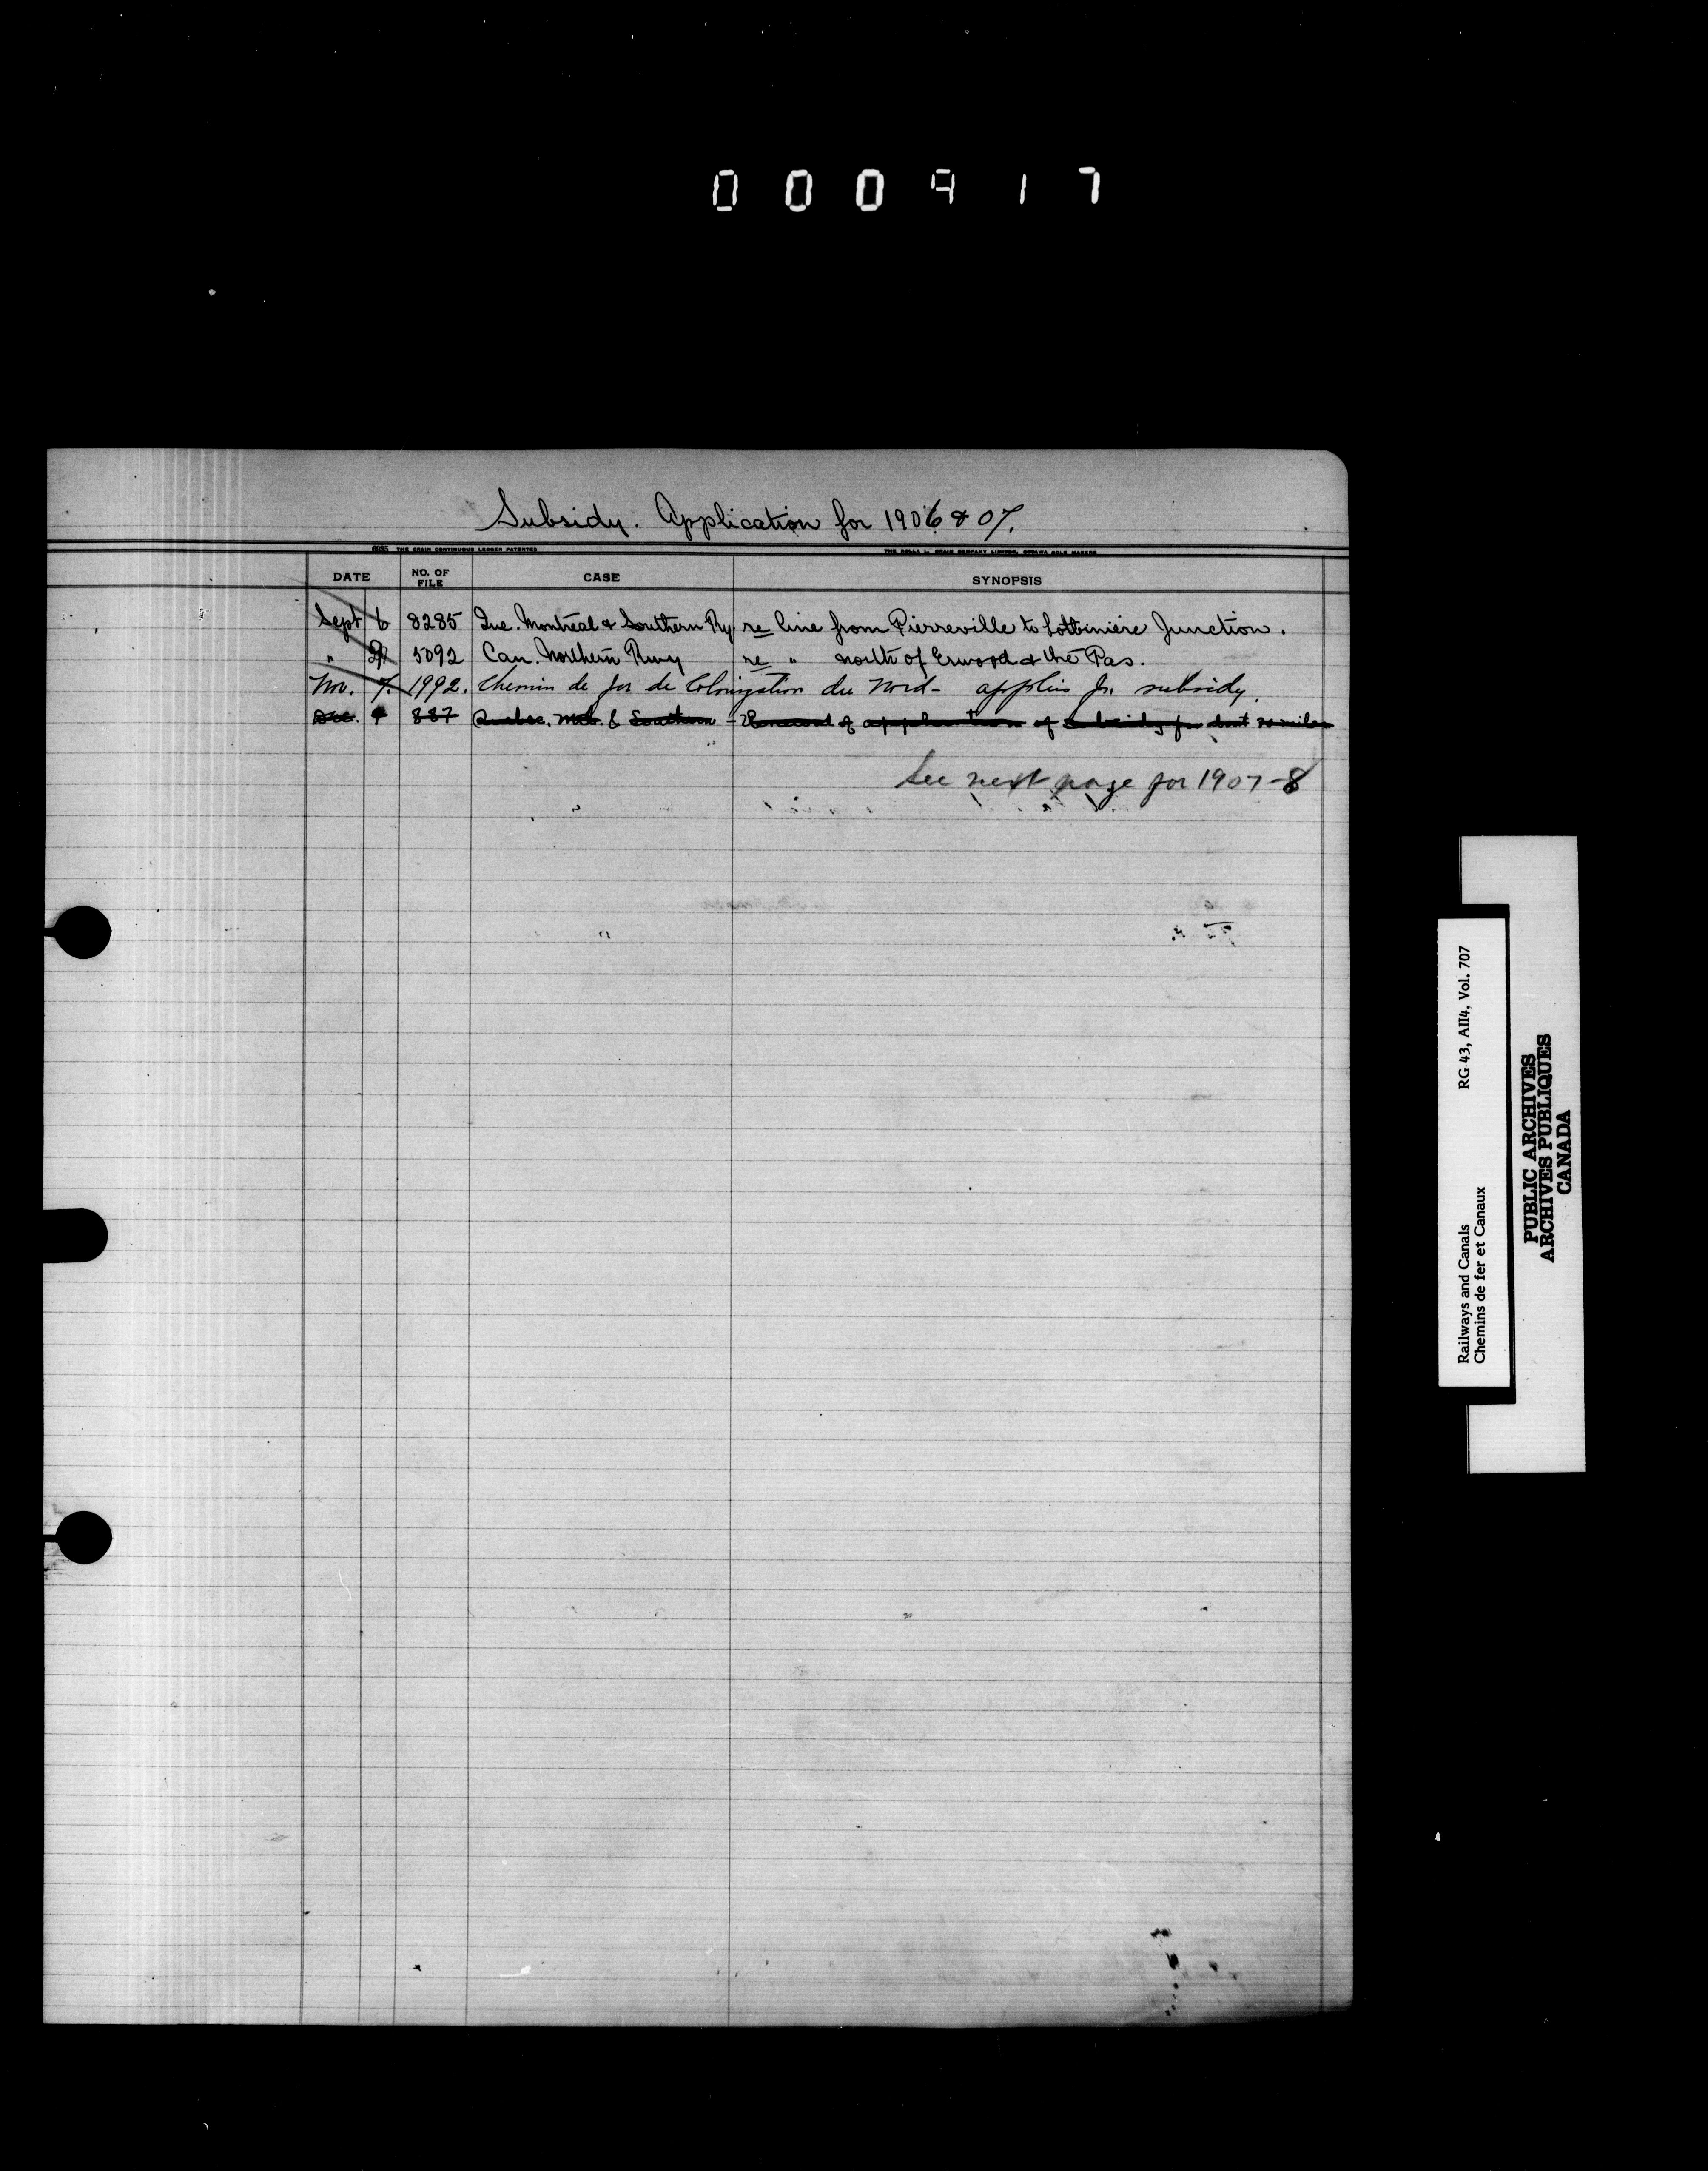 000917
Subsidy. Application for 1906 & 07.
THE CRAIN CONTINUOUS LEDGER PATENTED THE ROLLA L. CRAIN COMPANY LIMITED, OTTAWA SOLE MAKERS
DATE NO. OF FILE CASE SYNOPSIS
Sept 6 8285 Que. Montreal & Southern Ry re line from Pierreville to Lotbinière Junction.
" 5092 Can. Northern Rwy re " north of Erwood & the Pas.
Nov. 7. 1992. Chemin de fer de Colonization du Nord - applies for subsidy.
Dec. 887 Quebec, Mtl. & Southern - Renewal of application of subsidy for 70 miles
See next page for 1907-8
RG 43, AII4, Vol. 707
Railways and Canals
Chemins de fer et Canaux
PUBLIC ARCHIVES
ARCHIVES PUBLIQUES
CANADA